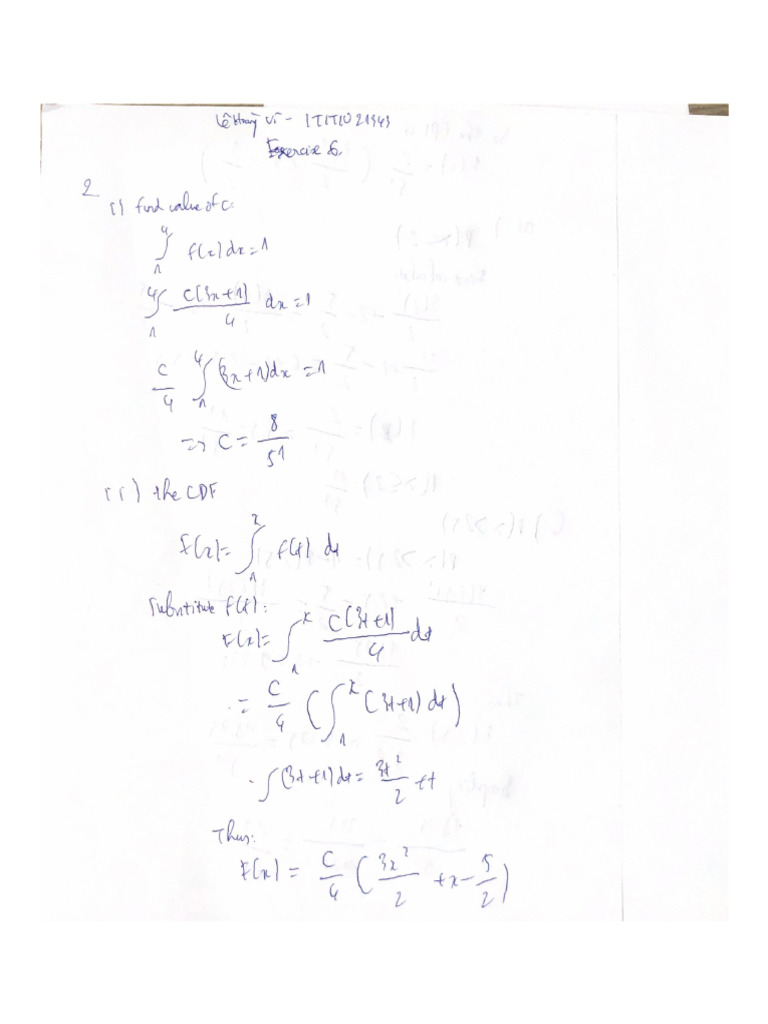 Lê Hoàng Vi - ITITIU21343
Exercise 6
2
i) find value of c:
∫₁⁴ f(x) dx = 1
∫₁⁴ c(3x+1)/4 dx = 1
c/4 ∫₁⁴ (3x+1)dx = 1
=> C = 8/51
ii) the CDF
F(x) = ∫₁ˣ f(t) dt
Substitute f(t):
F(x) = ∫₁ˣ c(3t+1)/4 dt
= c/4 (∫₁ˣ (3t+1) dt)
∫(3t+1)dt = 3t²/2 + t
Thus:
F(x) = c/4 (3x²/2 + x - 5/2)